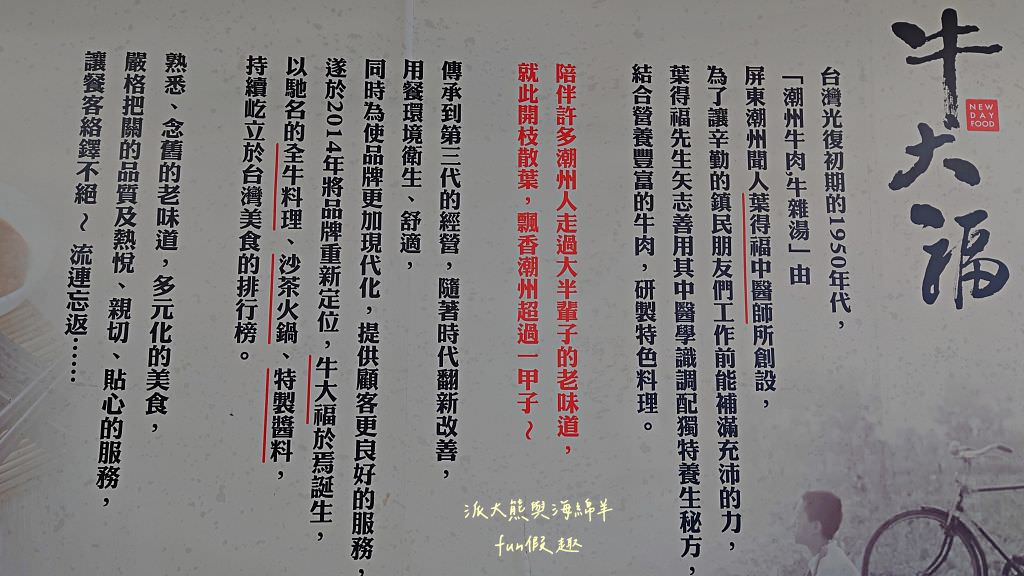 牛大福
NEW
DAY
FOOD
台灣光復初期的1950年代，
「潮州牛肉,牛雜湯」由
屏東潮州聞人葉得福中醫師所創設，
為了讓辛勤的鎮民朋友們工作前能補滿充沛的力，
葉得福先生矢志善用其中醫學識調配獨特養生秘方，
結合營養豐富的牛肉，研製特色料理。
陪伴許多潮州人走過大半輩子的老味道，
就此開枝散葉，飄香潮州超過一甲子～
傳承到第三代的經營，隨著時代翻新改善，
用餐環境衛生、舒適，
同時為使品牌更加現代化，提供顧客更良好的服務，
遂於2014年將品牌重新定位，牛大福於焉誕生，
以馳名的全牛料理、沙茶火鍋、特製醬料，
持續屹立於台灣美食的排行榜。
熟悉、念舊的老味道，多元化的美食，
嚴格把關的品質及熱悅、親切、貼心的服務，
讓餐客絡鐸不絕～流連忘返……
派大熊與海綿羊
fun假趣